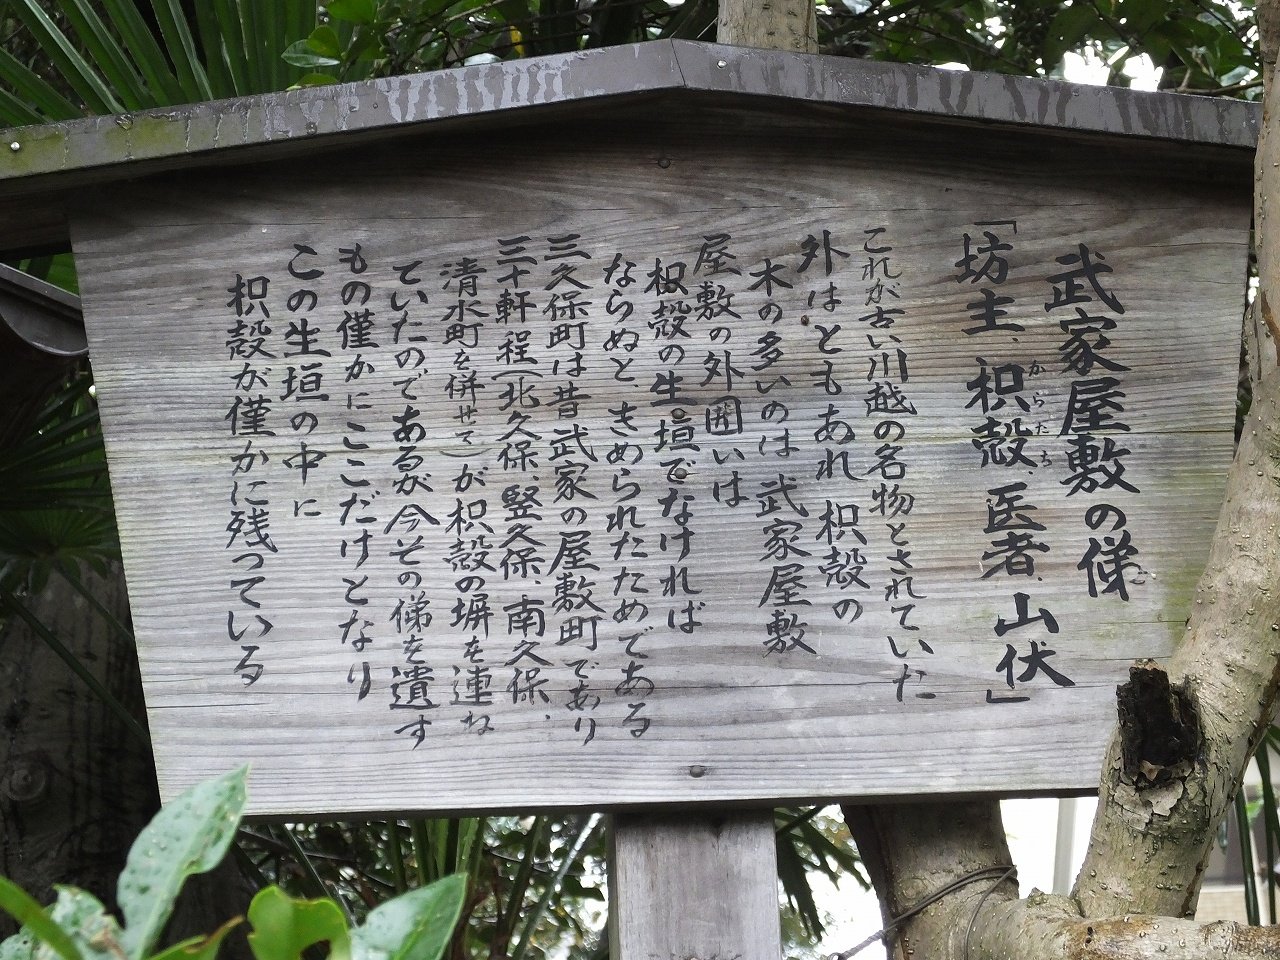 武家屋敷の俤
「坊主、枳殻、医者、山伏」
からたち
これが古い川越の名物とされていた
外はともあれ枳殻の
木の多いのは武家屋敷
屋敷の外囲いは
枳殻の生垣でなければ
ならぬと、きめられたためである
三久保町は昔武家の屋敷町であり
三十軒程(北久保、竪久保、南久保、
清水町を併せて)が枳殻の塀を連ね
ていたのであるが今その俤を遺す
もの僅かにここだけとなり
この生垣の中に
枳殻が僅かに残っている